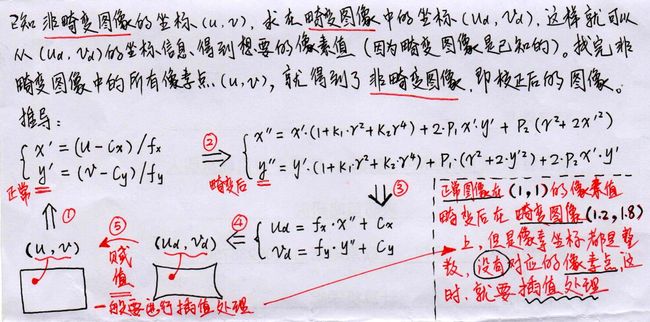 已知非畸变图像的坐标(u,v),求在畸变图像中的坐标(ud,vd),这样就可以
从(ud,vd)的坐标信息、得到想要的像素值(因为畸变图像是已知的)。找完非
畸变图像中的所有像素点(u,v),就得到了非畸变图像,即校正后的图像。
推导:
{ x' = (u-Cx)/fx
y' = (v-Cy)/fy
正常
②
⇒
{ x'' = x'·(1+K₁·r²+K₂r⁴)+2·P₁x'·y' + P₂(r²+2x'²)
y'' = y'·(1+K₁r²+K₂·r⁴)+P₁·(r²+2·y'²)+2·P₂x'·y'
畸变后
⇓ ③
{ ud = fx·x''+Cx
vd = fy·y''+Cy
④
⇐
(ud,vd)
⑤
赋值
(u,v)
⇑ ①
一般要进行插值处理
正常图像在(1,1)的像素值
畸变后在畸变图像(1.2,1.8)
上,但是像素坐标都是整
数,没有对应的像素点,这
时,就要插值处理